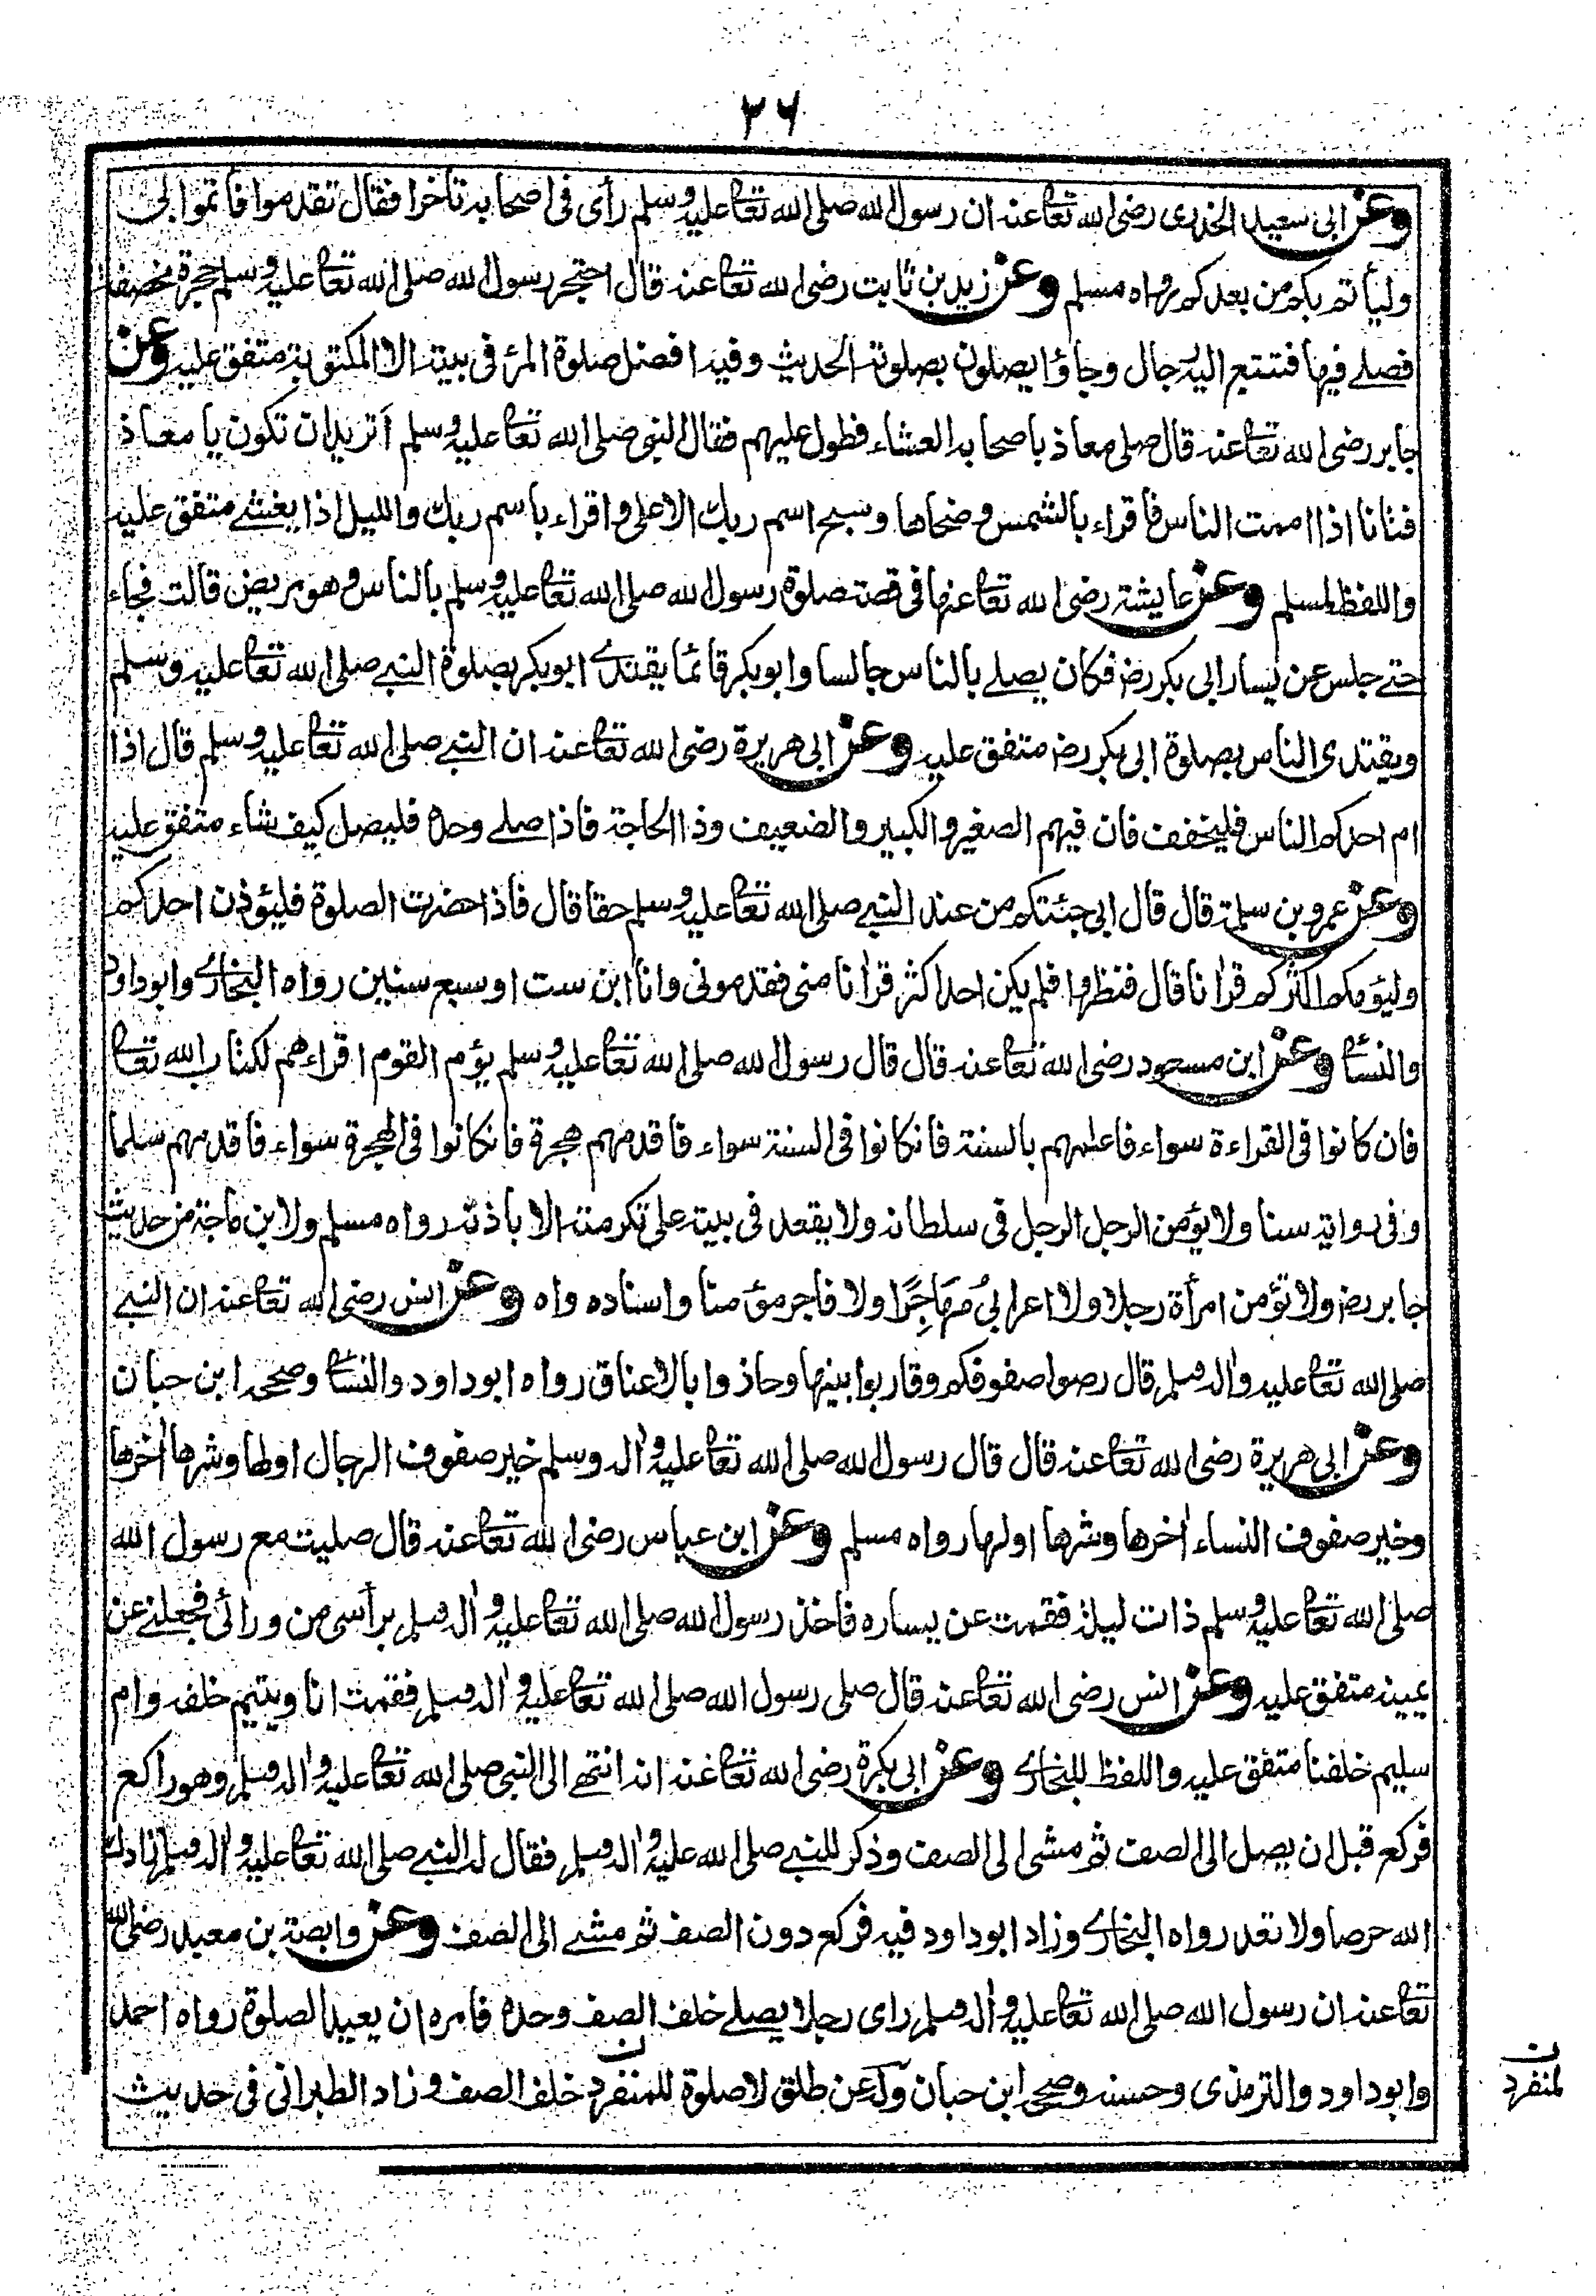 ٣٦
وعن ابى سعيد الخدرى رضى الله تعا عنه ان رسول الله صلى الله تعا عليه وسلم رأى فى اصحابه تأخرا فقال تقدموا فأتموا بى
وليأتم بكم من بعدكم رواه مسلم وعن زيد بن ثابت رضى الله تعا عنه قال احتجر رسول الله صلى الله تعا عليه وسلم حجرة مخصفة
فصلے فيها فتتبع اليه رجال وجاؤا يصلون بصلوته الحديث وفيه افضل صلوة المرء فى بيته الا المكتوبة متفق عليه وعن
جابر رضى الله تعا عنه قال صلى معاذ باصحابه العشاء فطول عليهم فقال النبى صلى الله تعا عليه وسلم أتريد ان تكون يا معاذ
فتانا اذا اممت الناس فاقراء بالشمس وضحاها وسبح اسم ربك الاعلى واقراء باسم ربك والليل اذا يغشے متفق عليه
واللفظ لمسلم وعن عايشة رضى الله تعا عنها فى قصة صلوة رسول الله صلى الله تعا عليه وسلم بالناس وهو مريض قالت فجاء
حتے جلس عن يسار ابى بكر رضـ فكان يصلے بالناس جالسا وابوبكر قائما يقتدے ابوبكر بصلوة النبے صلى الله تعا عليه وسلم
ويقتدى الناس بصلوة ابى بكر رضـ متفق عليه وعن ابى هريرة رضى الله تعا عنه ان النبے صلى الله تعا عليه وسلم قال اذا
ام احدكم الناس فليخفف فان فيهم الصغير والكبير والضعيف وذا الحاجة فاذا صلے وحده فليصل كيف شاء متفق عليه
وعن عمرو بن سلمة قال قال ابى جئتكم من عند النبے صلى الله تعا عليه وسلم حقا قال فاذا حضرت الصلوة فليؤذن احدكم
وليؤمكم اكثركم قرأنا قال فنظروا فلم يكن احد اكثر قرأنا منى فقدمونى وانا ابن ست او سبع سنين رواه البخارے وابوداود
والنسأ وعن ابن مسعود رضى الله تعا عنه قال قال رسول الله صلى الله تعا عليه وسلم يؤم القوم اقراءهم لكتاب الله تعا
فان كانوا فى القراءة سواء فاعلمهم بالسنة فانكانوا فى السنة سواء فاقدمهم هجرة فانكانوا فى الهجرة سواء فاقدمهم سلما
وفى رواية سنا ولا يؤمن الرجل الرجل فى سلطانه ولا يقعد فى بيته على تكرمته الا باذنه رواه مسلم ولابن ماجة من حديث
جابر رضـ ولا تؤمن امرأة رجلا ولا اعرابىُ مُهَاجِرًا ولا فاجر مؤمنا واسناده واه وعن انس رضى الله تعا عنه ان النبے
صلى الله تعا عليه واٰله وسلم قال رصوا صفوفكم وقاربوا بينها وحاذوا بالاعناق رواه ابوداود والنسأ وصححه ابن حبان
وعن ابى هريرة رضى الله تعا عنه قال قال رسول الله صلى الله تعا عليه واٰله وسلم خير صفوف الرجال اولها وشرها اٰخرها
وخير صفوف النساء اٰخرها وشرها اولها رواه مسلم وعن ابن عباس رضى الله تعا عنه قال صليت مع رسول الله
صلى الله تعا عليه وسلم ذات ليلة فقمت عن يساره فاخذ رسول الله صلى الله تعا عليه واٰله وسلم برأسى من ورائى فجعلنے عن
يمينه متفق عليه وعن انس رضى الله تعا عنه قال صلى رسول الله صلى الله تعا عليه واٰله وسلم فقمت انا ويتيم خلفه وام
سليم خلفنا متفق عليه واللفظ للبخارے وعن ابى بكرة رضى الله تعا عنه انه انتهے الى النبى صلى الله تعا عليه واٰله وسلم وهو راكع
فركع قبل ان يصل الى الصف ثم مشى الى الصف وذكر للنبے صلى الله عليه واٰله وسلم فقال له النبے صلى الله تعا عليه واٰله وسلم زادك
الله حرصا ولا تعد رواه البخارے وزاد ابوداود فيه فركع دون الصف ثم مشے الى الصف وعن وابصة بن معبد رضى الله
تعا عنه ان رسول الله صلى الله تعا عليه واٰله وسلم راى رجلا يصلے خلف الصف وحده فامره ان يعيد الصلوة رواه احمد
وابوداود والترمذى وحسنه وصححه ابن حبان وله عن طلق لا صلوة للمنفرد خلف الصف وزاد الطبرانى فى حديث
ن
لمنفرد